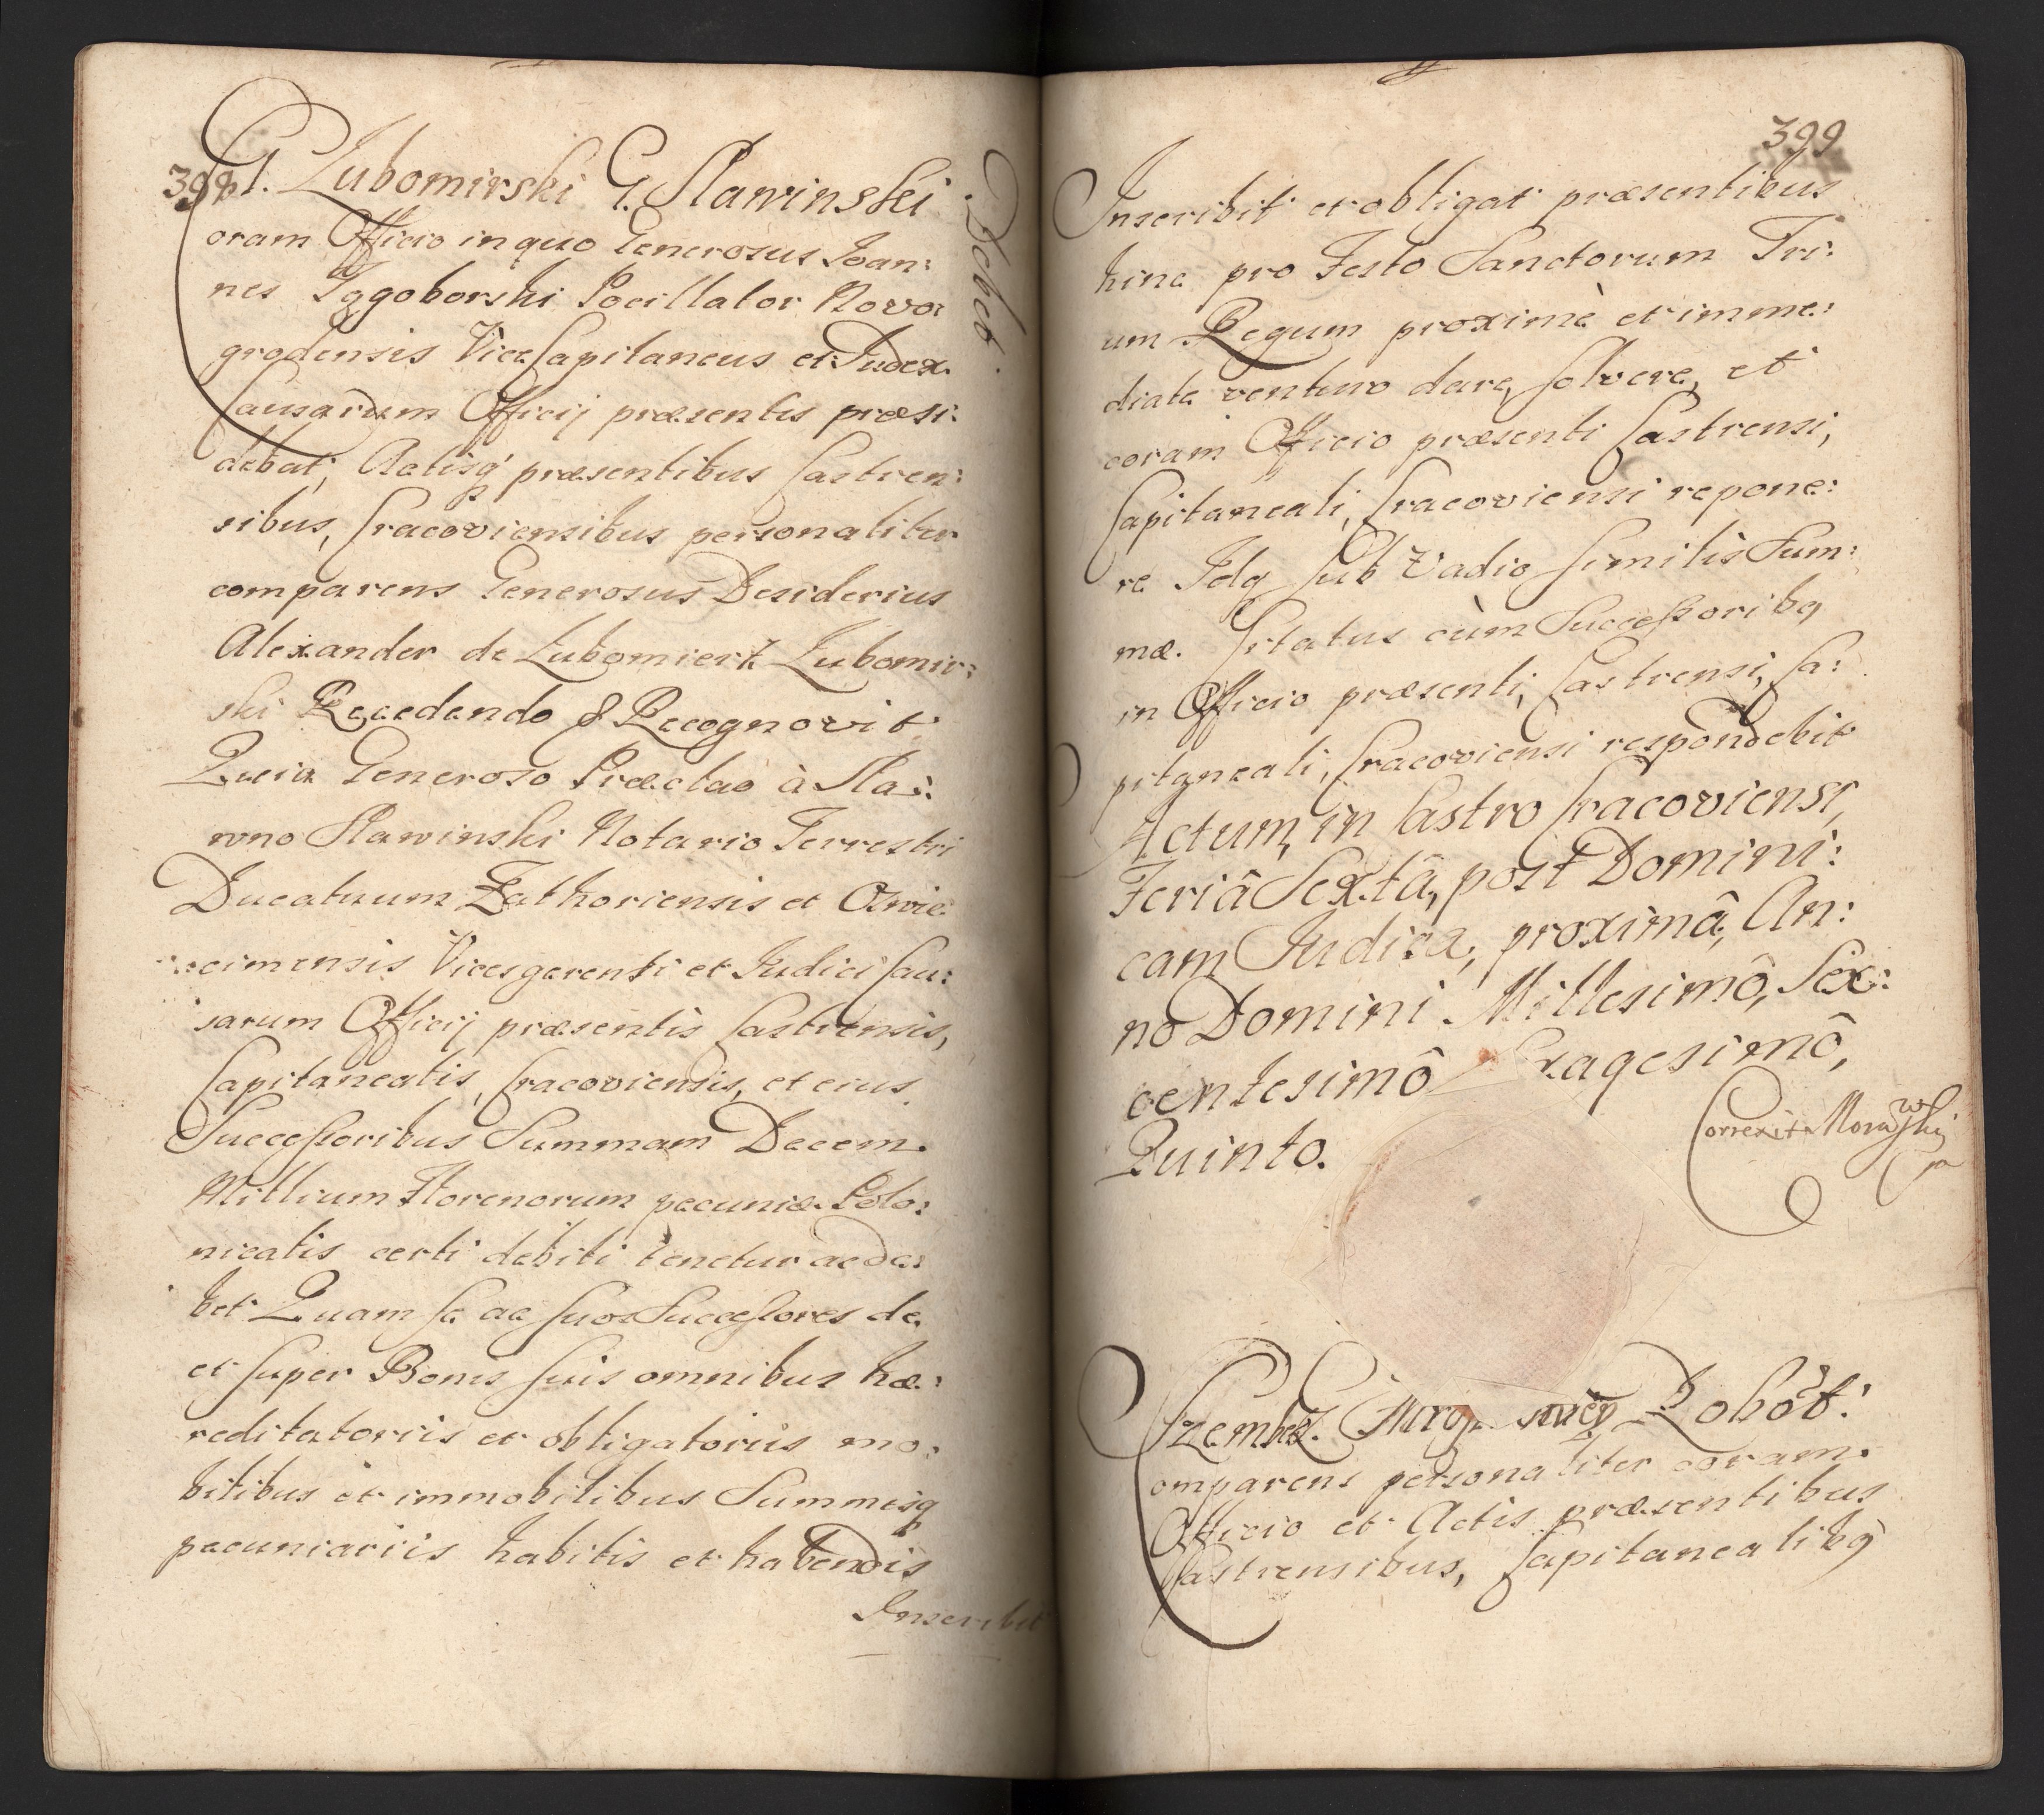 398
G. Lubomirski G. Slawinski
Debet.
oram Officio in quo Generosus Ioan:
nes Zgoborski Pocillator Novo:
grodensis ViceCapitaneus et Iudex
Causarum Officij præsentis præsi:
debat, Actisq præsentibus Castren:
sibus, Cracoviensibus personaliter
comparens Generosus Desiderius
Alexander de Lubomierz Lubomir:
ski Recedendo & Recognovit
Quia Generoso Præclao à Sla:
wno Slawinski Notario Terrestri
Ducatuum Zathoriensis et Oswie:
cimensis Vicesgerenti et Iudici Cau:
sarum Officij præsentis Castrensis,
Capitanealis, Cracoviensis, et eius
Successoribus Summam Decem
Millium Florenorum pecuniæ Polo:
nicalis certi debiti tenetur ac de:
bet Quam se ac suos Successores de
et super Bonis suis omnibus hæ:
reditatoriis et obligatoriis mo:
bilibus et immobilibus Summisq
pecuniariis habitis et habendis
Inscribit
399
Inscribit et obligat præsentibus
hinc pro Festo Sanctorum Tri:
um Regum proximè et imme:
diate venturo dare, solvere, et
coram Officio præsenti Castrensi,
Capitaneali, Cracoviensi repone:
re Idq sub Vadio similis Sum:
mæ. Citatus cùm Successoribq
in Officio præsenti, Castrensi, Ca:
pitaneali, Cracoviensi respondebit
Actum, in Castro Cracoviensi,
Feriâ Sextâ, post Domini:
cam Iudica, proximâ, An:
no Domini Millesimô, Sex:
centesimô xagesimô,
Quinto.
Correxit Morawski
Szembek.
omparens personaliter coram
Officio et Actis præsentibus
Castrensibus, Capitanealibq